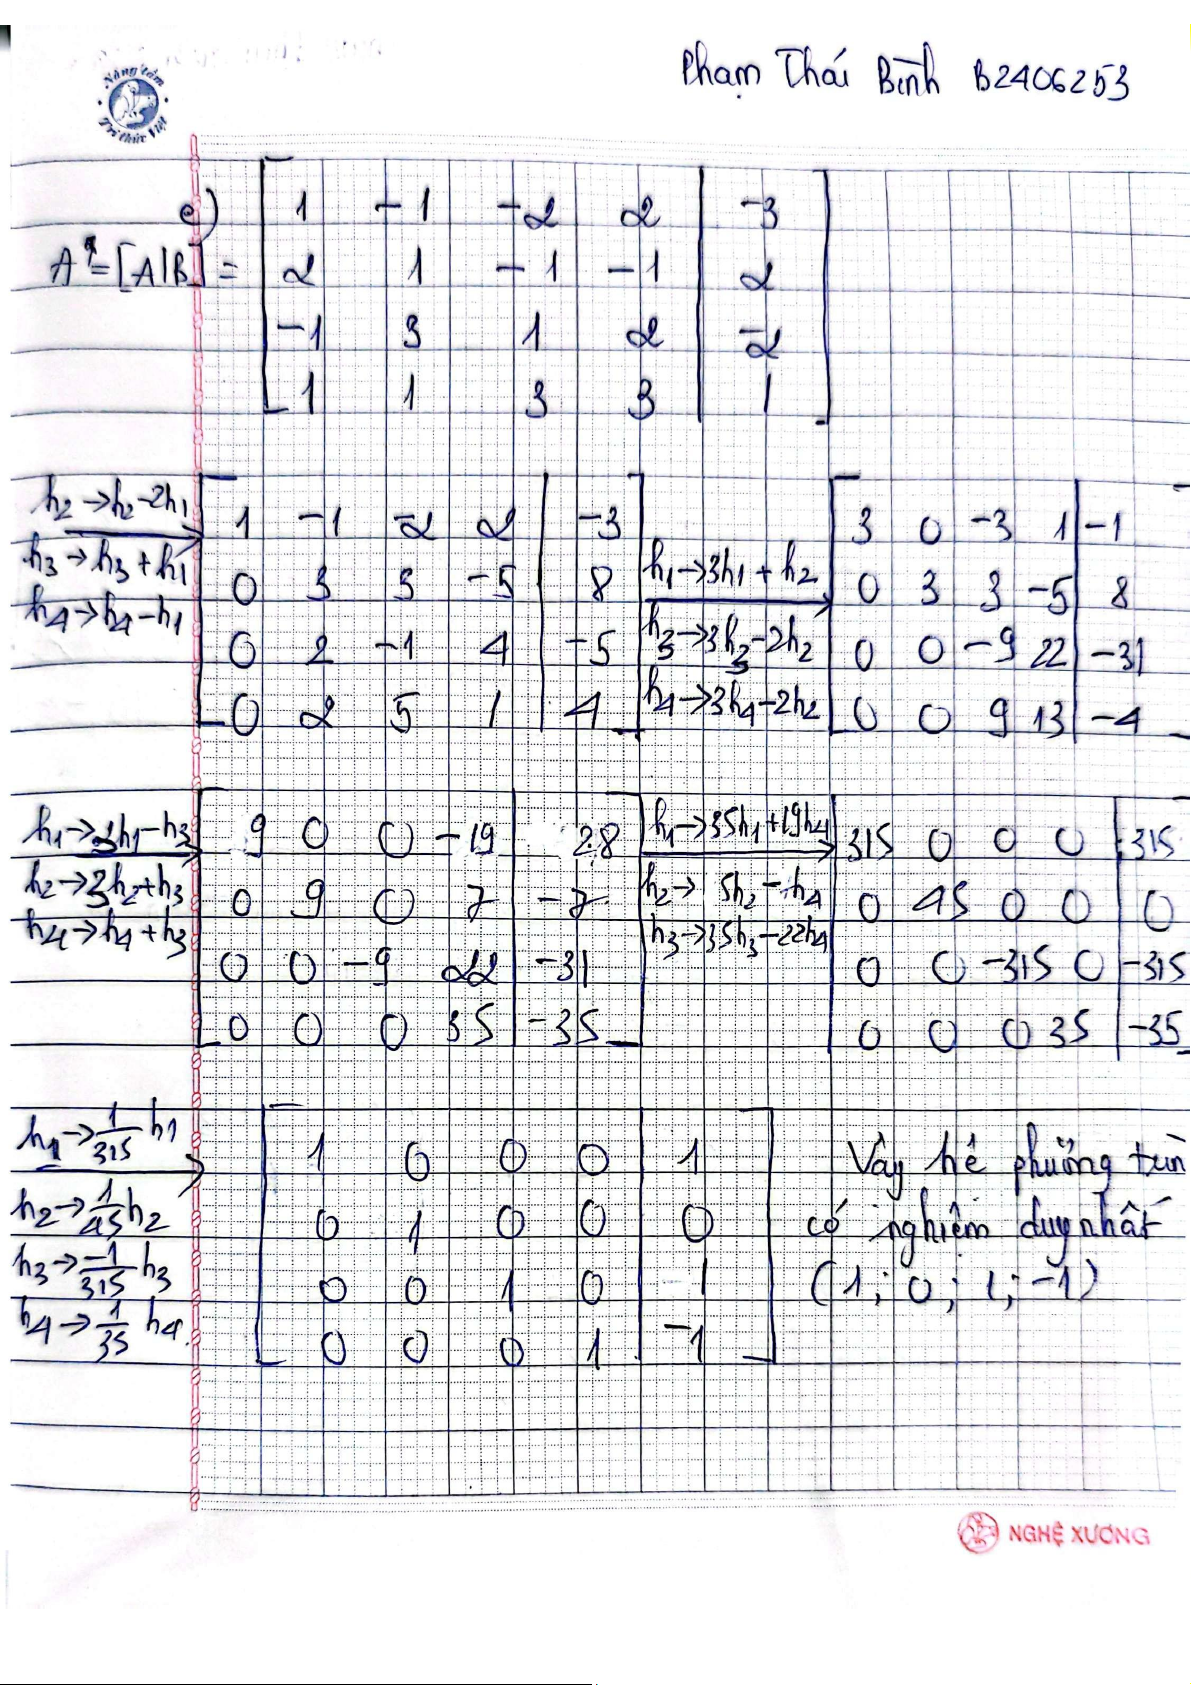 Nâng tầm
Tri thức Việt
Phạm Thái Bình B2406253
e)
1 -1 -2 2 | -3
A* = [A|B] = 2 1 -1 -1 | 2
-1 3 1 2 | -2
1 1 3 3 | 1
h2 → h2 - 2h1
h3 → h3 + h1
h4 → h4 - h1
1 -1 -2 2 | -3
0 3 3 -5 | 8
0 2 -1 4 | -5
0 2 5 1 | 4
h1 → 3h1 + h2
h3 → 3h3 - 2h2
h4 → 3h4 - 2h2
3 0 -3 1 | -1
0 3 3 -5 | 8
0 0 -9 22 | -31
0 0 9 13 | -4
h1 → 3h1 - h3
h2 → 3h2 + h3
h4 → h4 + h3
9 0 0 -19 | 28
0 9 0 7 | -7
0 0 -9 22 | -31
0 0 0 35 | -35
h1 → 35h1 + 19h4
h2 → 5h2 - h4
h3 → 35h3 - 22h4
315 0 0 0 | 315
0 45 0 0 | 0
0 0 -315 0 | -315
0 0 0 35 | -35
h1 → 1/315 h1
h2 → 1/45 h2
h3 → -1/315 h3
h4 → 1/35 h4.
1 0 0 0 | 1
0 1 0 0 | 0
0 0 1 0 | 1
0 0 0 1 | -1
Vậy hệ phương trìn
có nghiệm duy nhất
(1; 0; 1; -1)
NGHỆ XƯƠNG